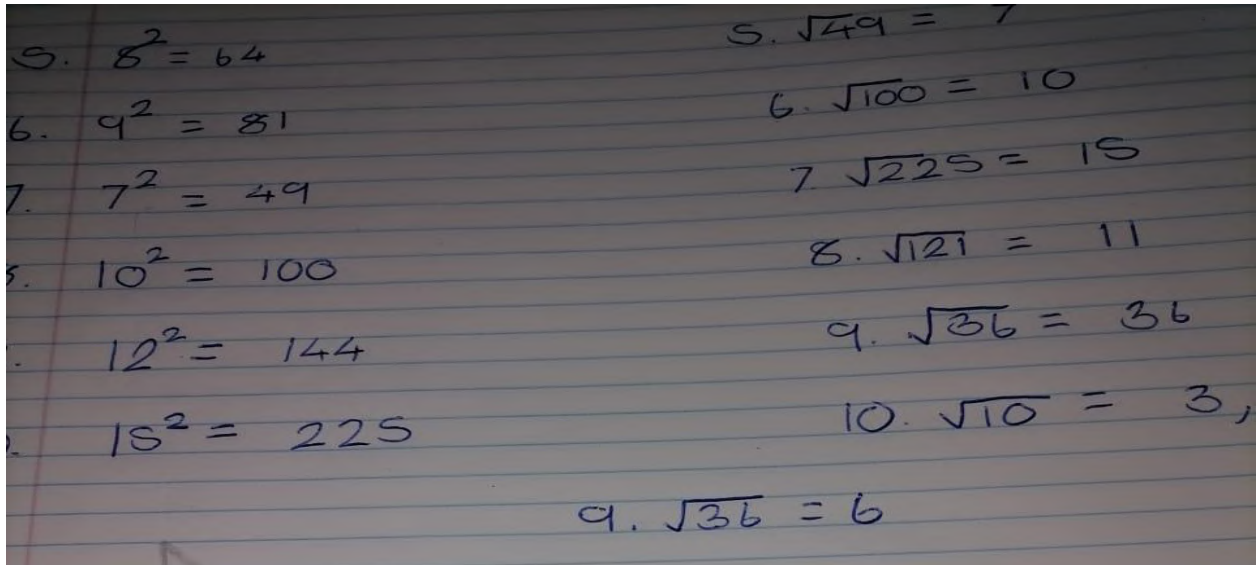 5. 8² = 64
6. 9² = 81
7. 7² = 49
10² = 100
12² = 144
15² = 225
5. √49 = 7
6. √100 = 10
7 √225 = 15
8. √121 = 11
9. √36 = 36
10. √10 = 3,
9. √36 = 6